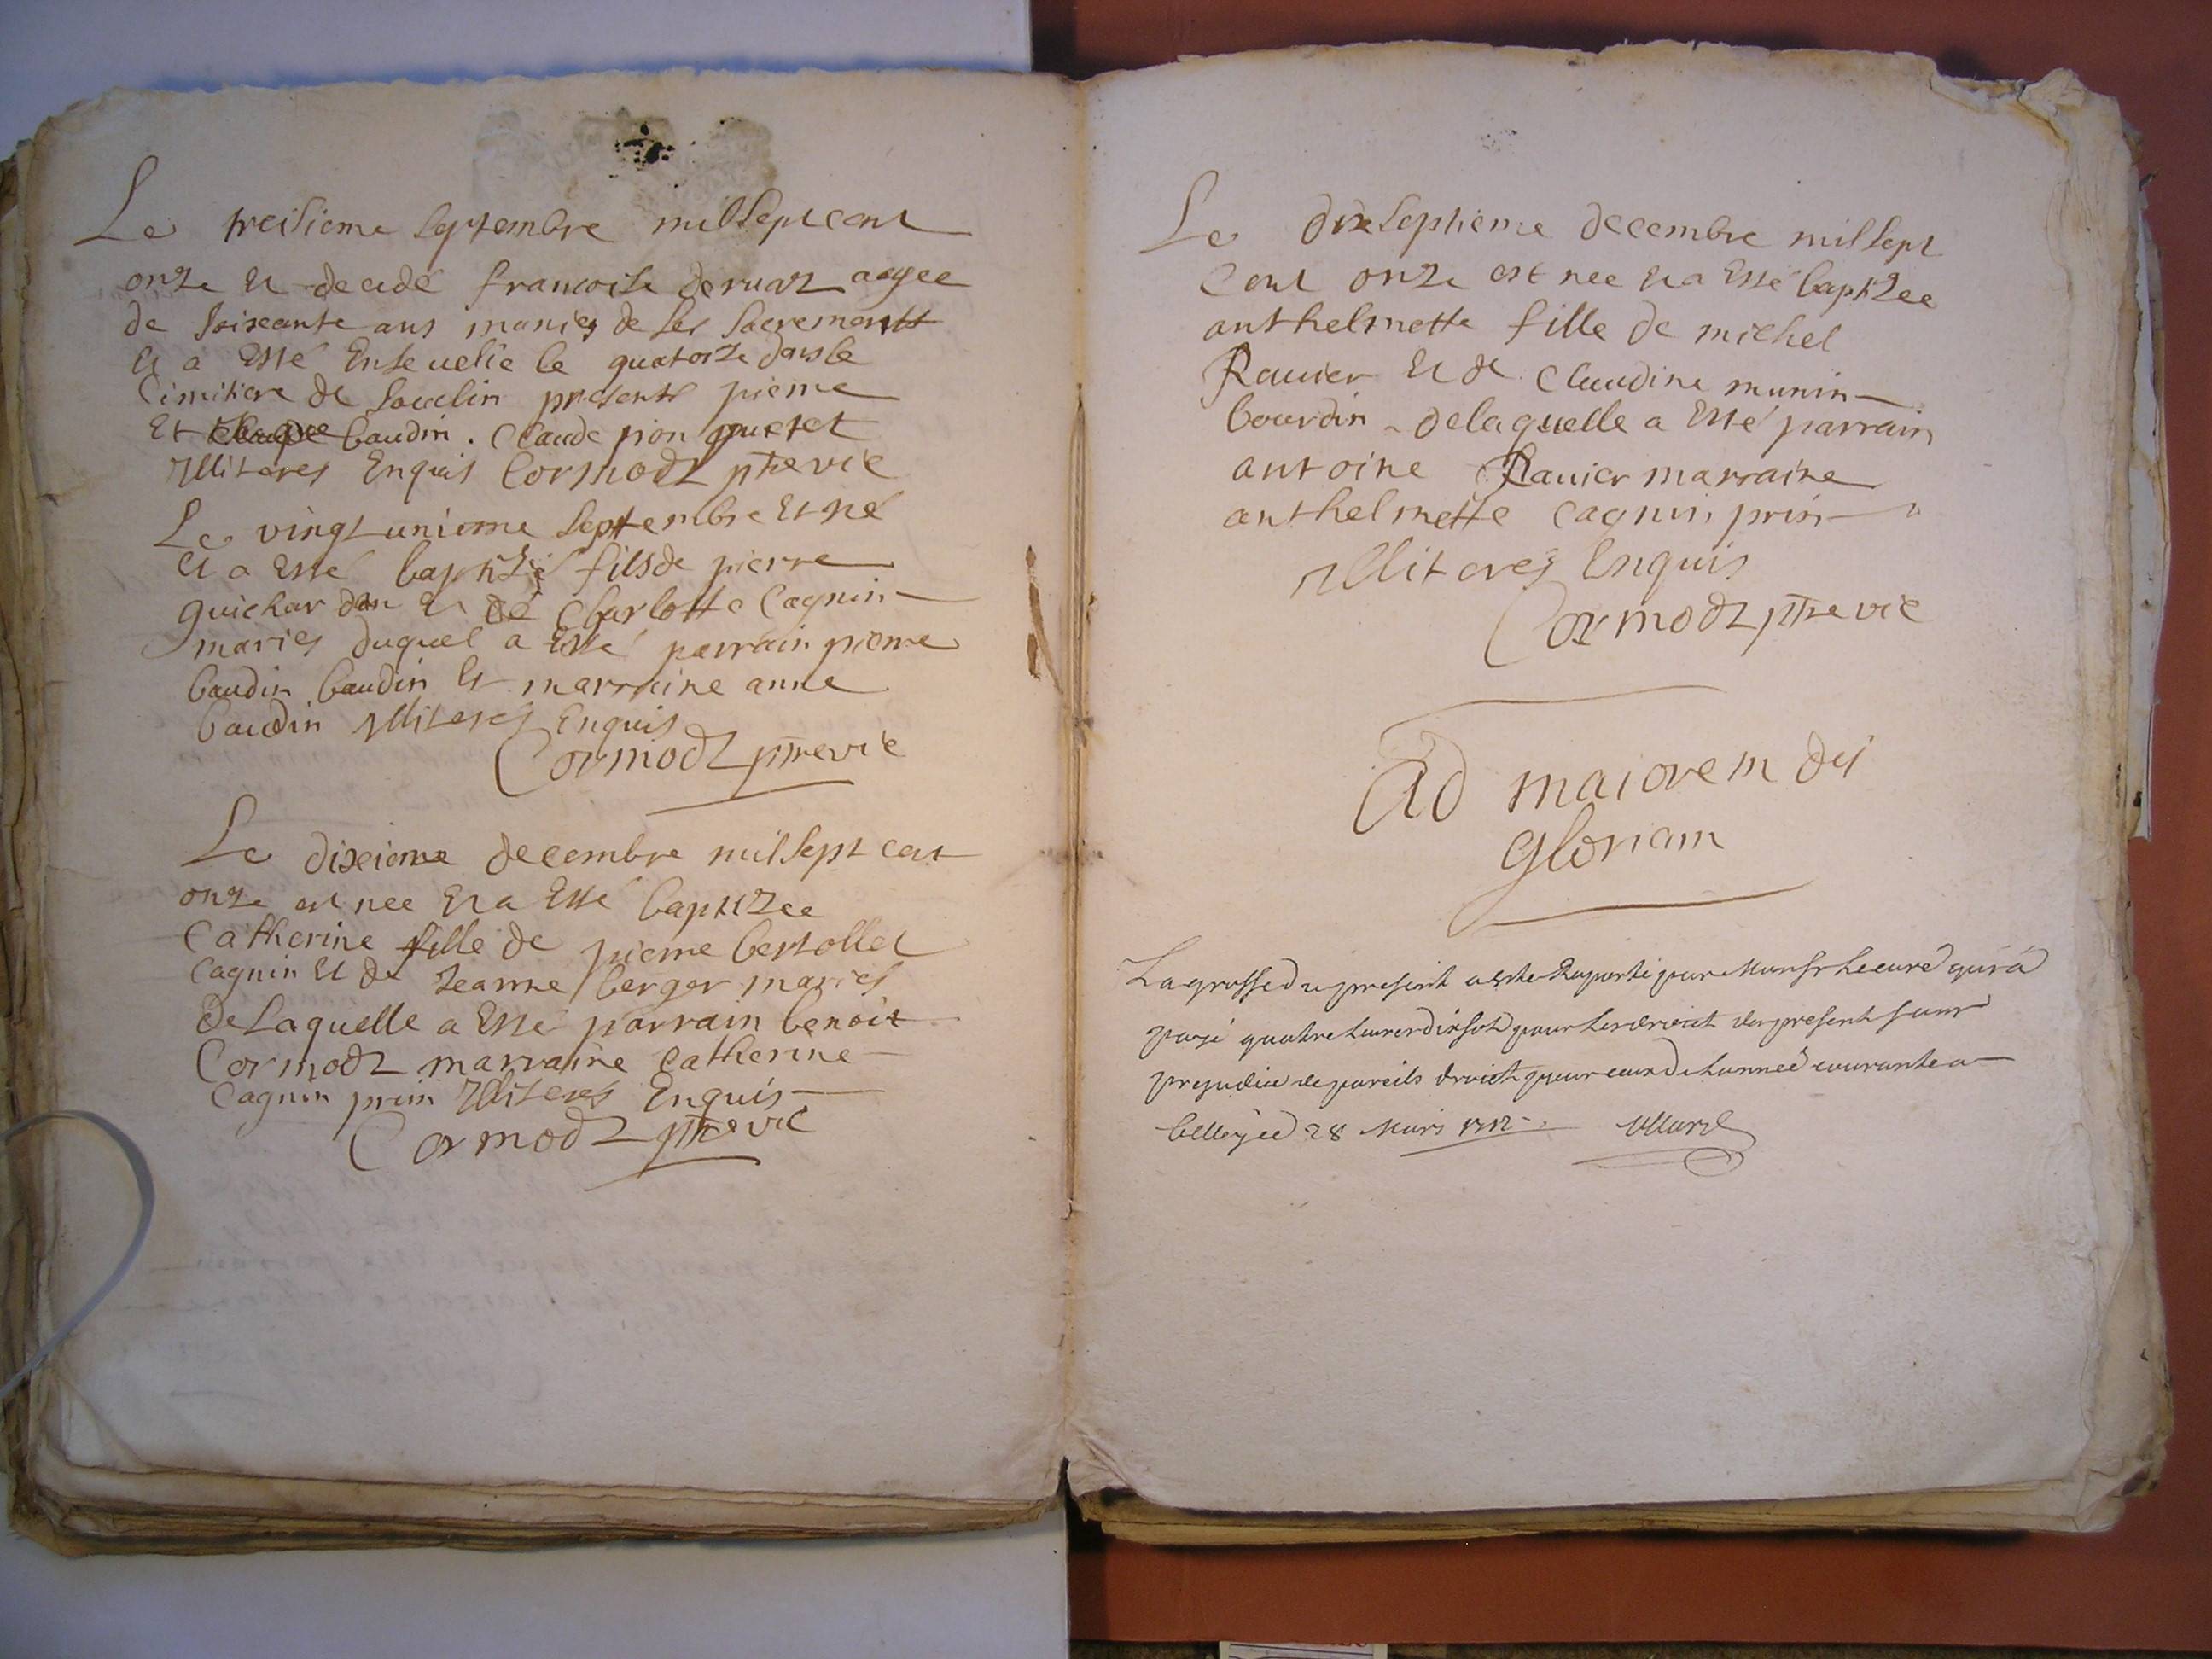 Le treisieme septembre mil sept cent
onze et decedé francoise deruaz aagee
de soixante ans munies de ses sacrements
et a esté ensevelie le quatorze dans le
cimitiere de presents pierre
et baudin . Claude pion
illiteres enquis Cormodz ptre vic
Le vingt unieme septembre et né
et a esté baptizé fils de pierre
guichardon et de Charlotte Cagnin
maries duquel a esté parrain pierre
baudin baudin et marraine anne
baudin illiteres enquis
Cormodz ptre vic
Le dixieme decembre mil sept cent
onze est nee et a esté baptizee
Catherine fille de pierre bertollet
Cagnin et de Jeanne berger maries
de laquelle a esté parrain benoit
Cormodz marraine Catherine
Cagnin prin illiteres enquis
Cormodz ptre vic
Le dixseptieme decembre mil sept
cent onze est nee et a esté baptizee
anthelmette fille de michel
Ravier et de Claudine munin
bourdin delaquelle a esté parrain
antoine Ravier marraine
anthelmette Cagnin prin
illiteres enquis
Cormodz ptre vic
Ad maiorem dei
gloriam
La grosse du present a esté Raporté par Monsr Le curé qui a
payé quatre Livres dix sols pour Les droict du present sans
prejudice de pareils droict pour ceux de L'année courante a
belley ce 28 Mars 1712